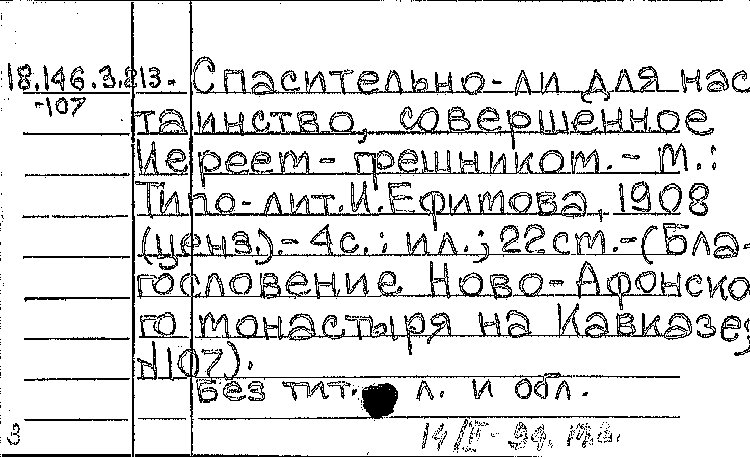 18.146.3.213. Спасительно-ли для нас
-107 таинство, совершенное
Иереем-грешником. - М.:
Типо-лит. И. Ефимова, 1908
(ценз.). - 4с.: ил.; 22см. - (Бла-
гословение Ново-Афонско-
го монастыря на Кавказе;
N107).
Без тит. л. и обл.
3